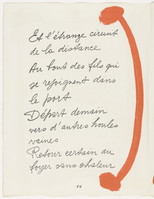 Et l'étrange circuit
de la distance
Au bout des fils qui
se rejoignent dans
le port
Départ demain
vers d'autres houles
vaines
Retour certain au
foyer sans chaleur